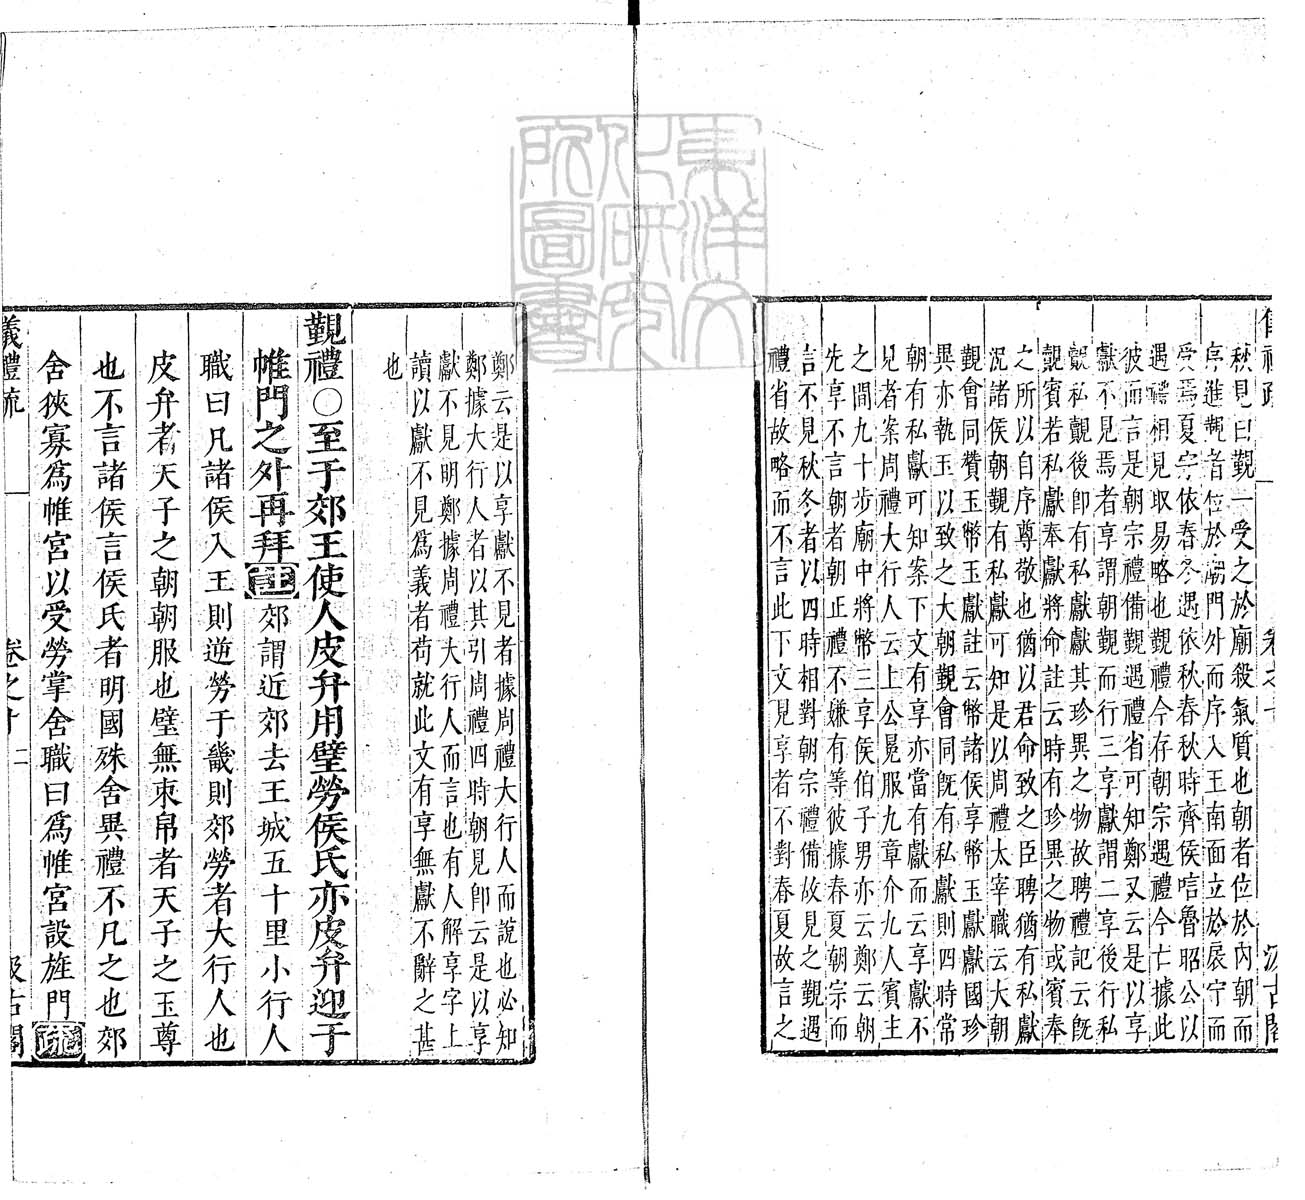 儀禮疏 卷之十 汲古閣
秋見曰覲一受之於廟殺氣質也朝者位於內朝而
序進覲者位於廟門外而序入王南面立於扆宁而
受焉夏宗依春冬遇依秋春秋時齊侯唁魯昭公以
遇禮相見取易略也覲禮今存朝宗遇禮今亡據此
彼而言是朝宗禮備覲遇禮省可知鄭又云是以享
獻不見焉者享謂朝覲而行三享獻謂二享後行私
覿私覿後卽有私獻獻其珍異之物故聘禮記云旣
覿賓若私獻奉獻將命註云時有珍異之物或賓奉
之所以自序尊敬也猶以君命致之臣聘猶有私獻
況諸侯朝覲有私獻可知是以周禮太宰職云大朝
覲會同贊玉幣玉獻註云幣諸侯享幣玉獻獻國珍
異亦執玉以致之大朝覲會同旣有私獻則四時常
朝有私獻可知案下文有享亦當有獻而云享獻不
見者案周禮大行人云上公冕服九章介九人賓主
之間九十步廟中將幣三享侯伯子男亦云鄭云朝
先享不言朝者朝正禮不嫌有等彼據春夏朝宗而
言不見秋冬者以四時相對朝宗禮備故見之覲遇
禮省故略而不言此下文見享者不對春夏故言之
鄭云是以享獻不見者據周禮大行人而說也必知
鄭據大行人者以其引周禮四時朝見卽云是以享
獻不見明鄭據周禮大行人而言也有人解享字上
讀以獻不見爲義者苟就此文有享無獻不辭之甚
也
覲禮○至于郊王使人皮弁用璧勞侯氏亦皮弁迎于
帷門之外再拜註郊謂近郊去王城五十里小行人
職曰凡諸侯入王則逆勞于畿則郊勞者大行人也
皮弁者天子之朝朝服也璧無束帛者天子之玉尊
也不言諸侯言侯氏者明國殊舍異禮不凡之也郊
舍狹寡爲帷宮以受勞掌舍職曰爲帷宮設旌門疏
儀禮疏 卷之十 二 汲古閣
東洋文化研究所圖書